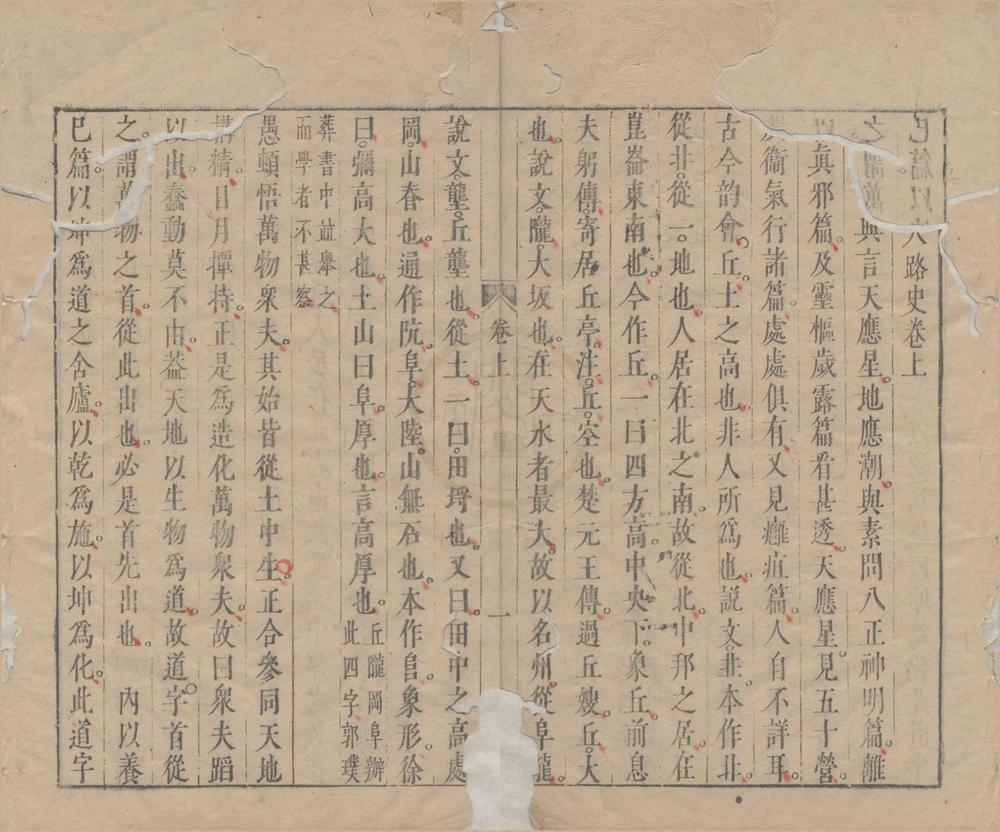 路史卷上
言天應星地應潮與素問八正神明篇離
真邪篇及靈樞歲露篇看甚透天應星見五十營
衞氣行諸篇處處俱有又見癰疽篇人自不詳耳
古今韵會丘土之高也非人所為也說文丠本作丠
從北從一地也人居在北之南故從北中邦之居在
崑崙東南也今作丘一曰四方高中央下象丘前息
夫躬傳寄居丘亭注丘空也楚元王傳過丘嫂丘大
也說文隴大坂也在天水者最大故以名州從阜龍
卷上 一
說文壟丘壟也從土一曰田埒也又曰田中之高處
岡山脊也通作阬阜大陸山無石也本作𨸏象形徐
曰彌高大也土山曰阜厚也言高厚也丘隴岡阜辦
此四字郭璞
葬書中竝舉之
而學者不甚察
愚頓悟萬物衆夫其始皆從土中生正合參同天地
媾精日月撣持正是爲造化萬物衆夫故曰衆夫蹈
以出蠢動莫不由葢天地以生物爲道故道字首從
之謂萬物之首從此出也必是首先出也 內以養
已篇以坤爲道之舍廬以乾爲施以坤爲化此道字